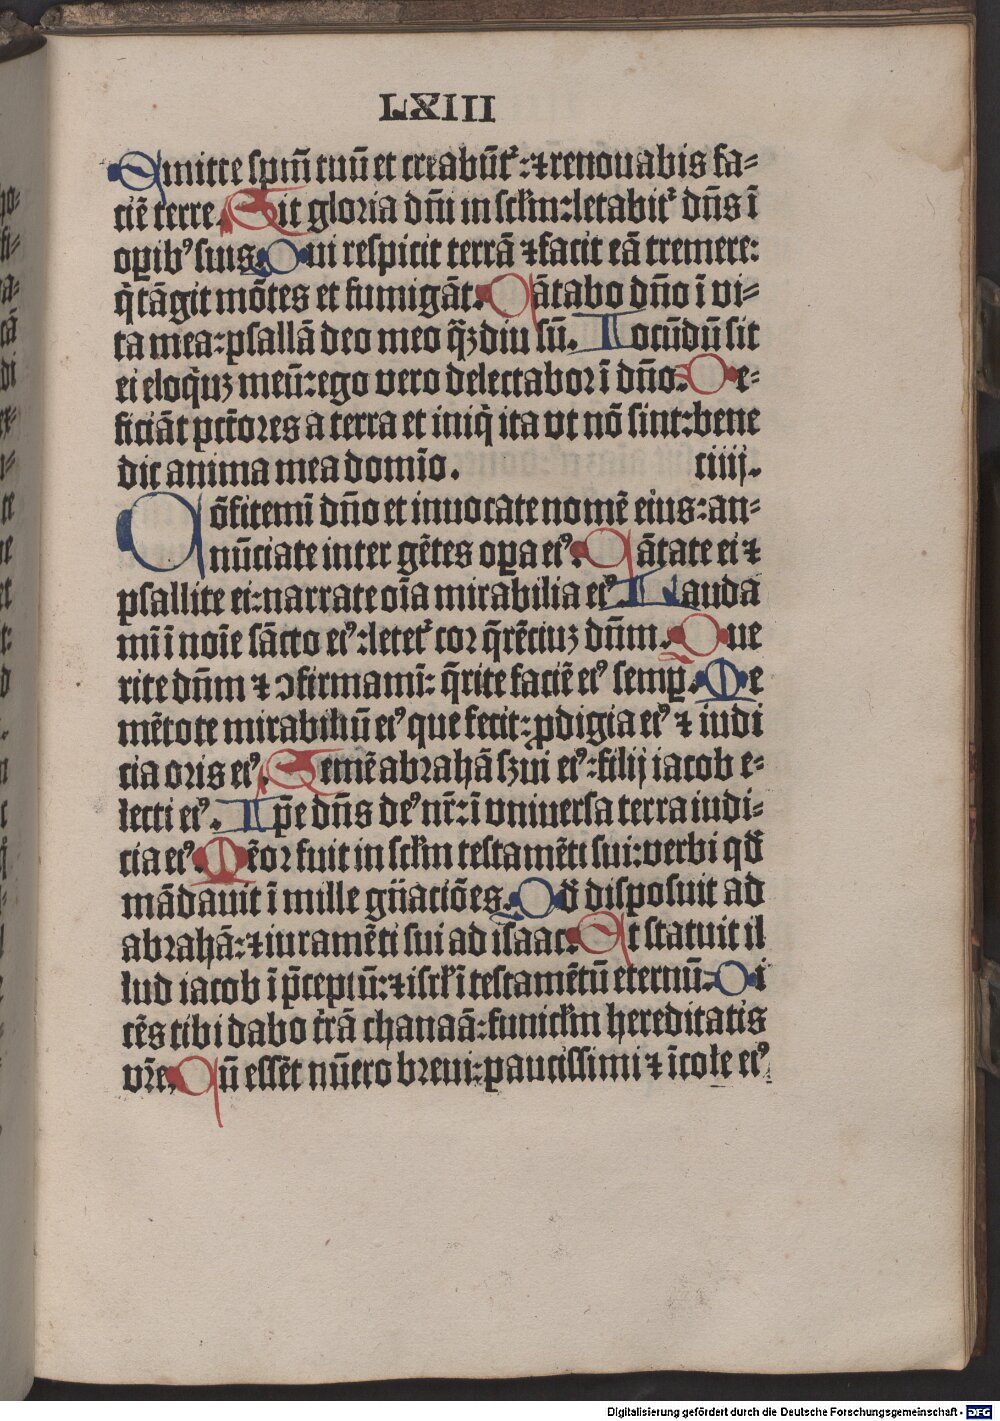 LXIII
Emitte spm̄ tuū et creabūt᷑: ⁊ renouabis fa⸗
ciē terre. Sit gloria dn̄i in sclm̄: letabit᷑ dn̄s ī
oꝑibꝰ suis. Qui respicit terrā ⁊ facit eā tremere:
q̄ tāgit mōtes et fumigāt. Cātabo dn̄o ī vi⸗
ta mea: psallā deo meo q̄ꝫdiu sū. Iocūdū sit
ei eloq̄uꝫ meū: ego vero delectabor ī dn̄o. De⸗
ficiāt pctōres a terra et iniq̄ ita vt nō sint: bene
dic anima mea domīo. ciiij.
Cōfitemī dn̄o et inuocate nomē eius: an⸗
nūciate inter gētes oꝑa eiꝰ. Cātate ei ⁊
psallite ei: narrate oīa mirabilia eiꝰ. Lauda
mī ī noīe sācto eiꝰ: letet᷑ cor q̄rētiuꝫ dn̄m. Que
rite dn̄m ⁊ ↄfirmamī: q̄rite faciē eiꝰ semꝑ. Me
mētote mirabiliū eiꝰ que fecit: ꝓdigia eiꝰ ⁊ iudi
cia oris eiꝰ. Semē abrahā sꝫui eiꝰ: filij iacob e⸗
lecti eiꝰ. Ip̄e dn̄s deꝰ nr̄: ī vniuersa terra iudi⸗
cia eiꝰ. Mēor fuit in sclm̄ testamēti sui: verbi qd̄
mādauit ī mille gn̄acōes. Qd̄ disposuit ad
abrahā: ⁊ iuramēti sui ad isaac. Et statuit il
lud iacob ī p̄ceptū: ⁊ isrl̄ ī testamētū eternū. Di
cēs tibi dabo t̄rā chanaā: funiclm̄ hereditatis
vr̄e. Cū essēt nūero breui: paucissimi ⁊ īcole eiꝰ
Digitalisierung gefördert durch die Deutsche Forschungsgemeinschaft - DFG